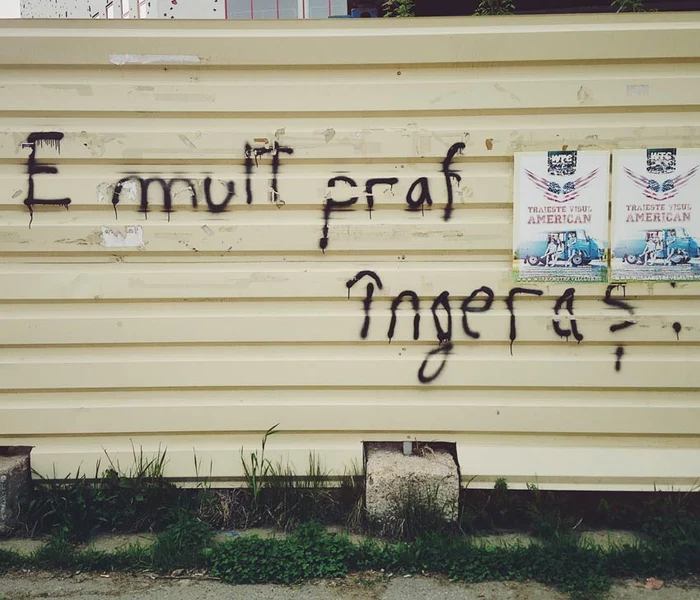 E mult praf
îngeraș.
WTC
TRAIESTE VISUL
AMERICAN
WTC
TRAIESTE VISUL
AMERICAN